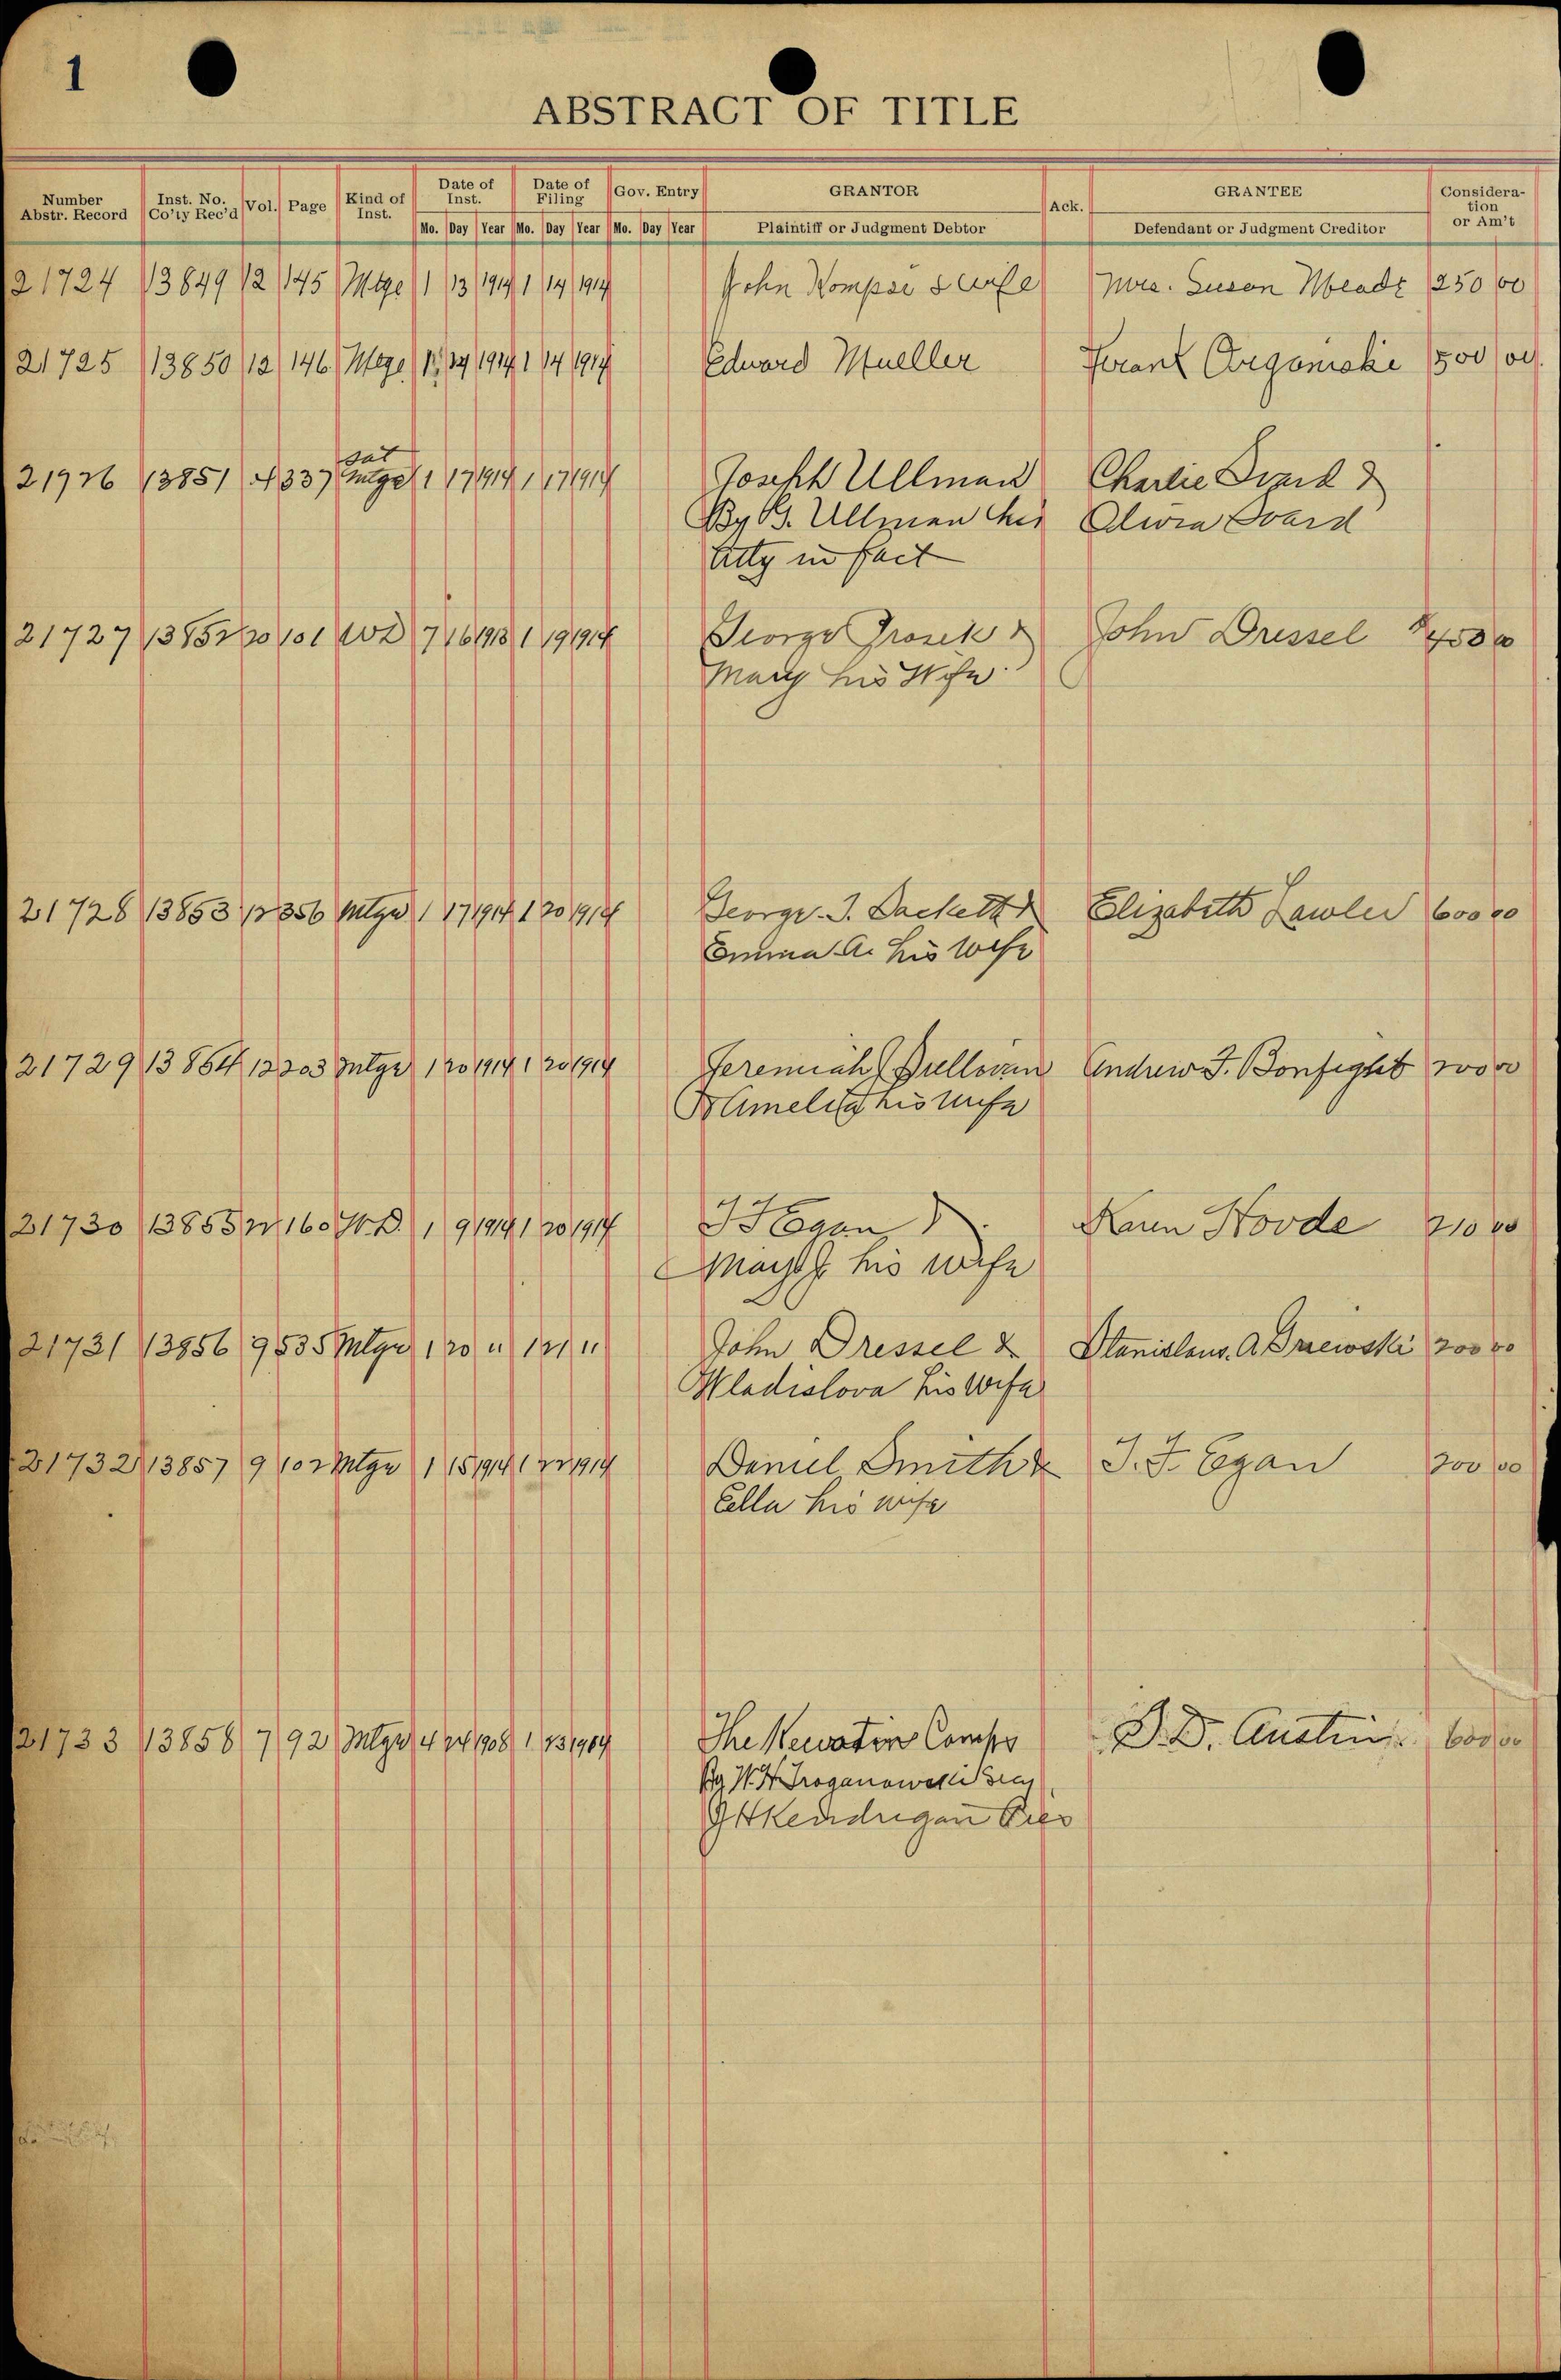 1
ABSTRACT OF TITLE
Number Abstr. Record Inst. No. Co'ty Rec'd Vol. Page Kind of Inst. Date of Inst. Date of Filing Gov. Entry GRANTOR Ack. GRANTEE Considera-tion or Am't
Mo. Day Year Mo. Day Year Mo. Day Year Plaintiff or Judgment Debtor Defendant or Judgment Creditor
21724 13849 12 145 Mtge 1 13 1914 1 14 1914 John Kompsi & wife Mrs. Susan Meade 250 00
21725 13850 12 146 Mtge 1 14 1914 1 14 1914 Edward Mueller Frank Organiski 500 00
sat
21726 13851 4 337 mtge 1 17 1914 1 17 1914 Joseph Ullman Charlie Svard &
By B. Ullman his Olivia Svard
atty in fact
21727 13852 20 101 WD 7 16 1913 1 19 1914 George Grosek & John Dressel $450 00
Mary his Wife
21728 13853 12 356 Mtge 1 17 1914 1 20 1914 George J. Dackett & Elizabeth Lawler 600 00
Emma A. his wife
21729 13854 12 203 Mtge 1 20 1914 1 20 1914 Jeremiah Sullivan Andrew J. Bonfight 200 00
& Amelia his wife
21730 13855 22 160 W.D. 1 9 1914 1 20 1914 J F Egan & Karen Hovde 210 00
his wife
21731 13856 9 535 Mtge 1 20 " 1 21 " John Dressel & Stanislaus. A 200 00
Wladislova his wife
21732 13857 9 102 Mtge 1 15 1914 1 22 1914 Daniel Smith & J. F. Egan 200 00
Ella his wife
21733 13858 7 92 Mtge 4 24 1908 1 23 1914 The Kewatin Camps D. D. Austin 600 00
By W. H. Troganowski Secy
Kendrigan Pres